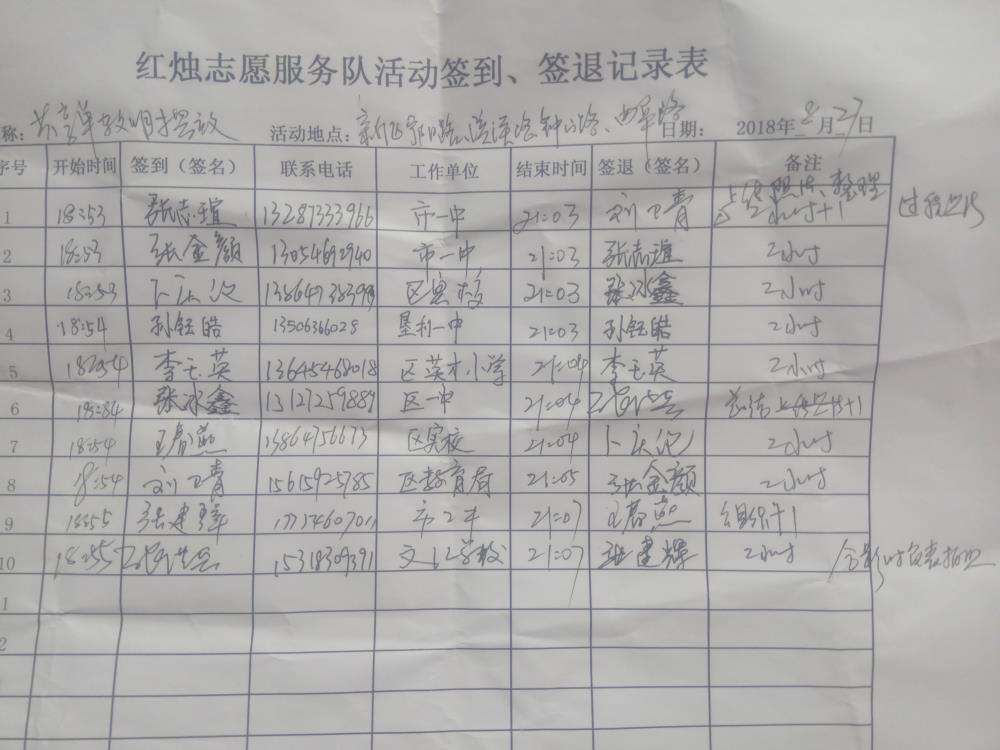 红烛志愿服务队活动签到、签退记录表
称: 共享单车文明摆放 活动地点: 日期: 2018年 8 月 27 日
序号 开始时间 签到（签名） 联系电话 工作单位 结束时间 签退（签名） 备注
1 18:53 张志瑄 13287333966 市一中 21:03 刘卫青
2 18:53 张金颜 13054692940 市一中 21:03 张志瑄 2小时
3 18:53 13864738398 区实校 21:03 张冰鑫 2小时
4 18:54 孙钰皓 13506366028 垦利一中 21:03 孙钰皓 2小时
5 18:54 李玉英 13645468018 区英才小学 21:04 李玉英 2小时
6 18:54 张冰鑫 13127259889 区一中 21:04
7 18:54 王春燕 13864756673 区实校 21:04 2小时
8 18:54 刘卫青 15615925785 区教育局 21:05 张金颜 2小时
9 18:55 张建辉 17774607011 市二中 21:07 王春燕 组织+1
10 18:55 15318309391 21:07 张建辉 2小时
1
2